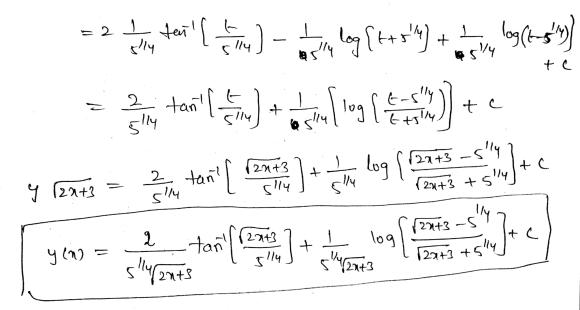 = 2 1/5^1/4 tan^-1 [t/5^1/4] - 1/5^1/4 log(t+5^1/4) + 1/5^1/4 log(t-5^1/4)] + c
= 2/5^1/4 tan^-1 [t/5^1/4] + 1/5^1/4 [log (t-5^1/4 / t+5^1/4)] + c
y √2x+3 = 2/5^1/4 tan^-1 [√2x+3 / 5^1/4] + 1/5^1/4 log [√2x+3 - 5^1/4 / √2x+3 + 5^1/4] + c
y(x) = 2/5^1/4√2x+3 tan^-1 [√2x+3 / 5^1/4] + 1/5^1/4√2x+3 log [√2x+3 - 5^1/4 / √2x+3 + 5^1/4] + c